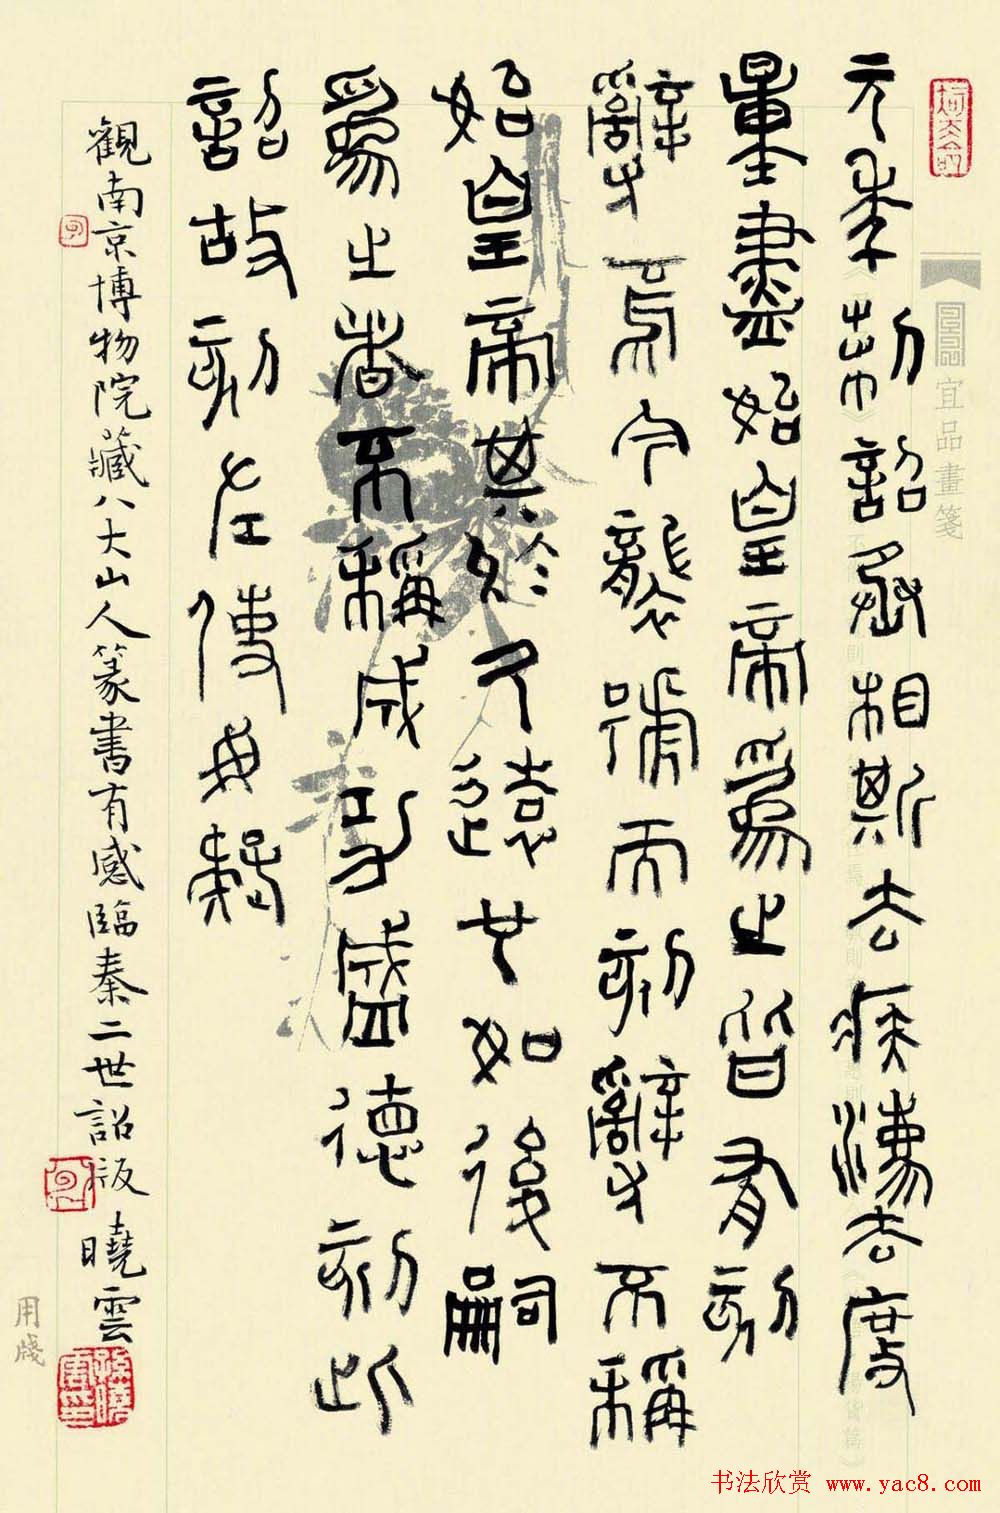 宜品畫箋
元年制詔丞相斯去疾灋度
量盡始皇帝爲之皆有刻
辭焉今襲號而刻辭不稱
始皇帝其於久遠也如後嗣
爲之者不稱成功盛德刻此
詔故刻左使毋疑
觀南京博物院藏八大山人篆書有感臨秦二世詔版 曉雲
孫曉雲印
用牋
书法欣赏 www.yac8.com